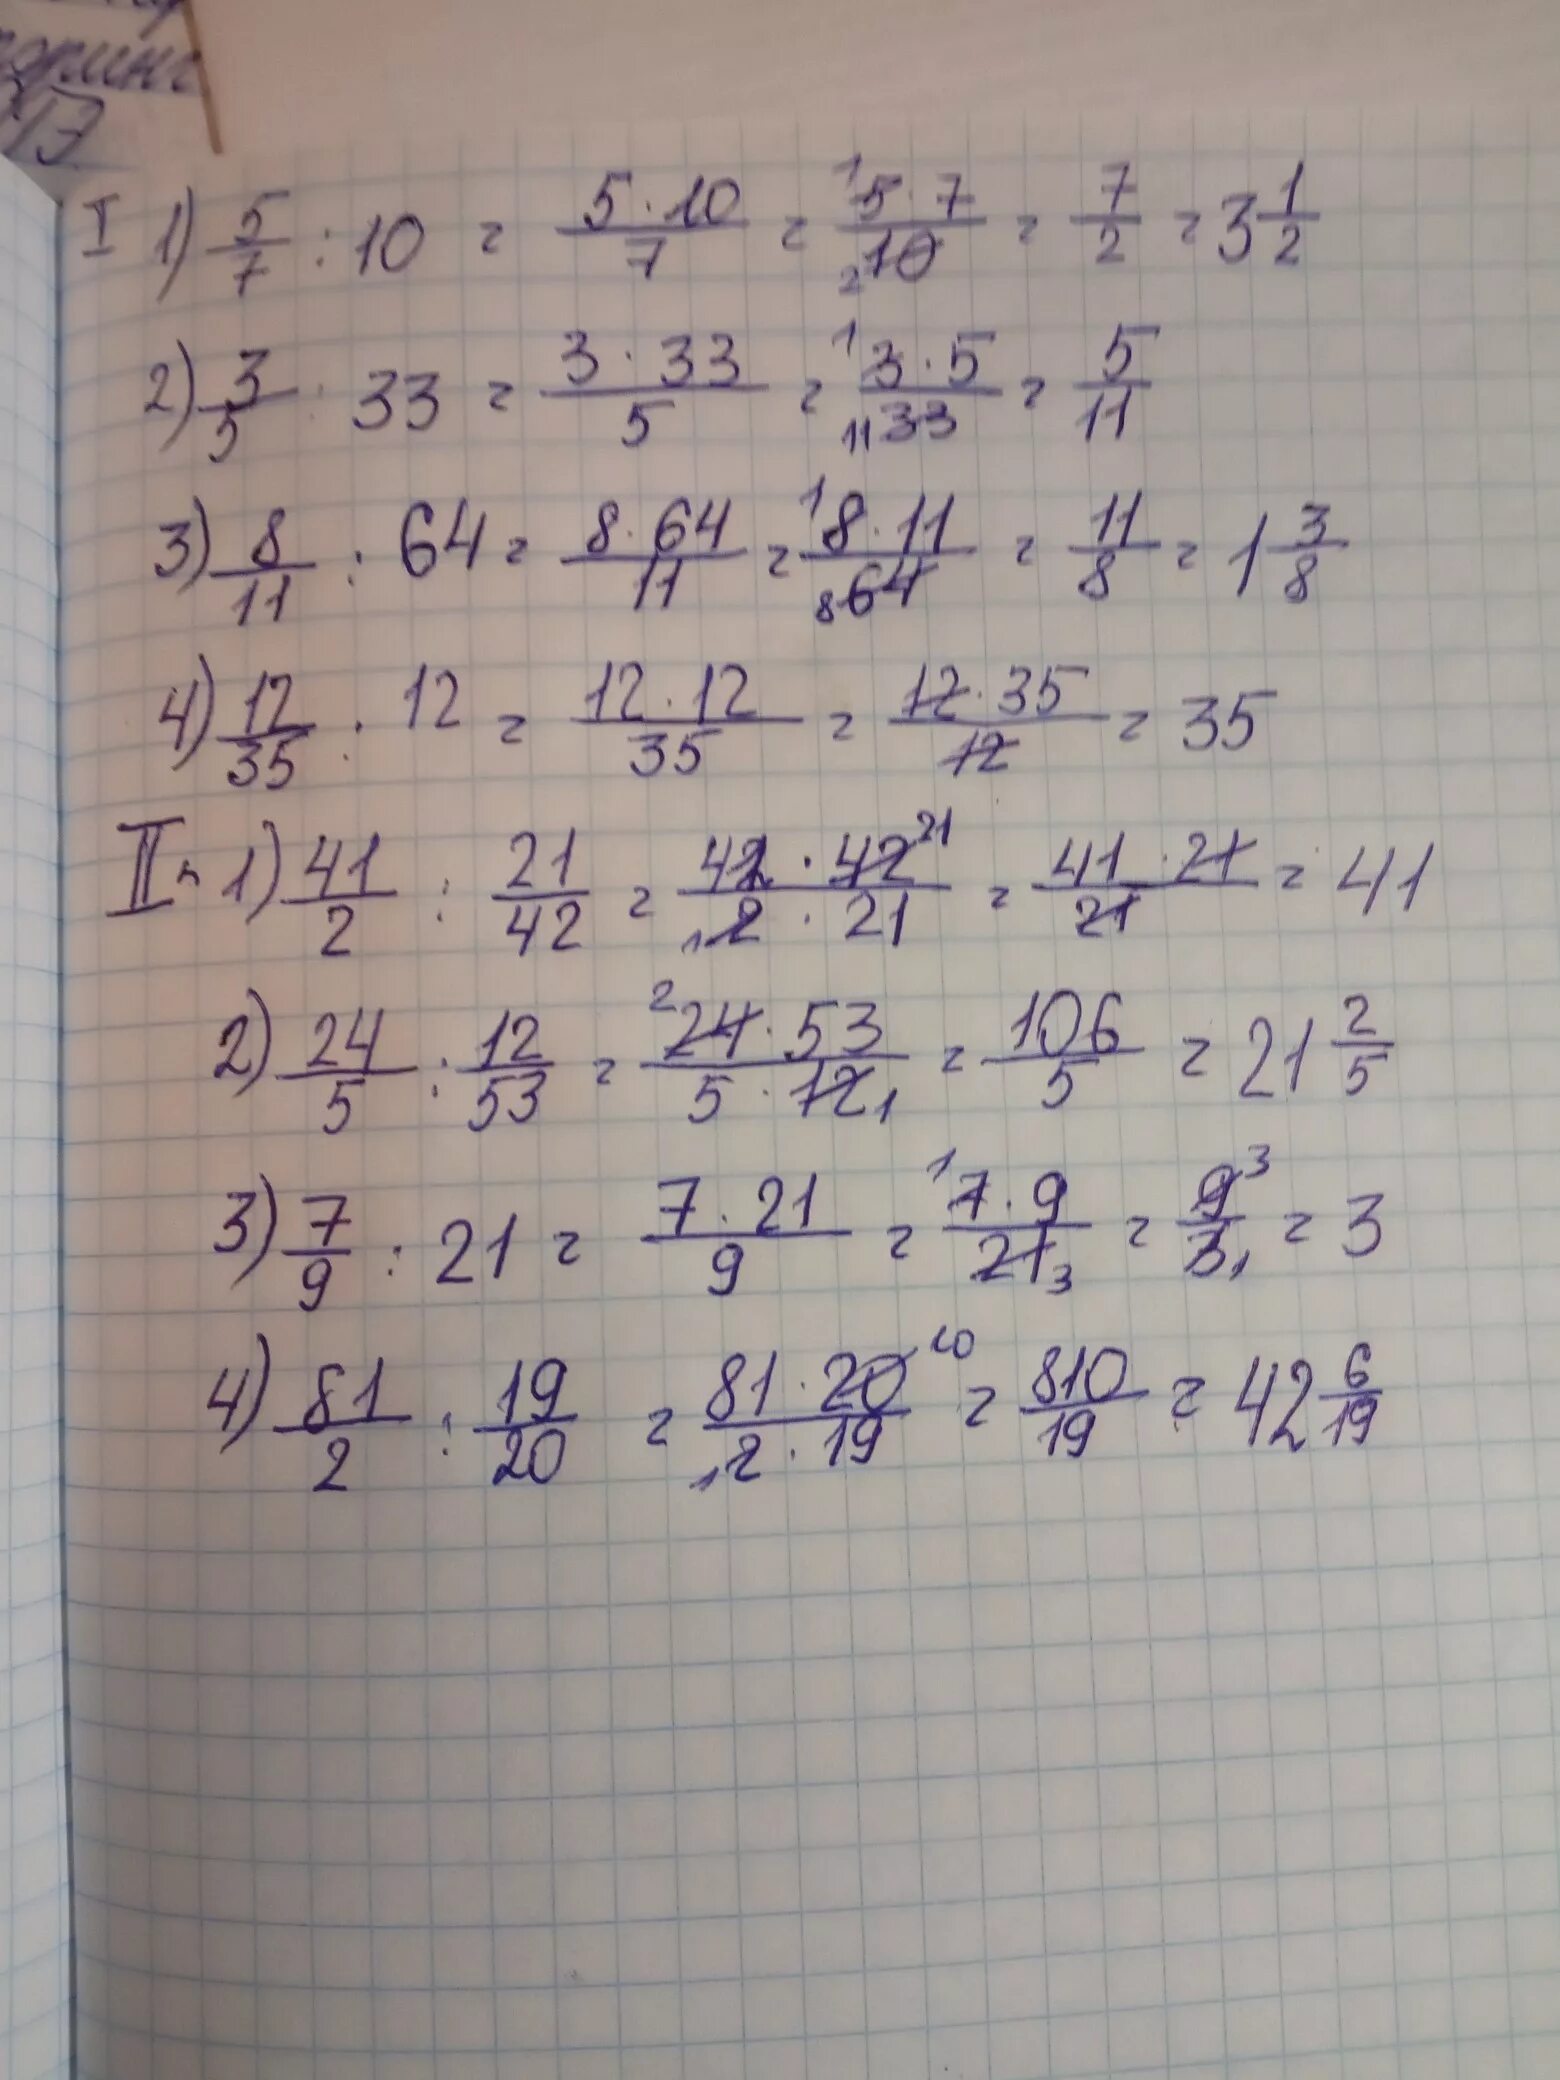 оринг
17
I 1) 5/7 : 10 = 5·10/7 = ¹5·7/₂10 = 7/2 = 3 1/2
2) 3/5 : 33 = 3·33/5 = ¹3·5/₁₁33 = 5/11
3) 8/11 : 64 = 8·64/11 = ¹8·11/₈64 = 11/8 = 1 3/8
4) 12/35 : 12 = 12·12/35 = 12·35/12 = 35
II 1) 41/2 : 21/42 = 41·42²¹/₁2·21 = 41·21/21 = 41
2) 24/5 : 12/53 = ²24·53/5·12₁ = 106/5 = 21 2/5
3) 7/9 : 21 = 7·21/9 = ¹7·9/21₃ = 9³/3₁ = 3
4) 81/2 : 19/20 = 81·20¹⁰/₁2·19 = 810/19 = 42 6/19